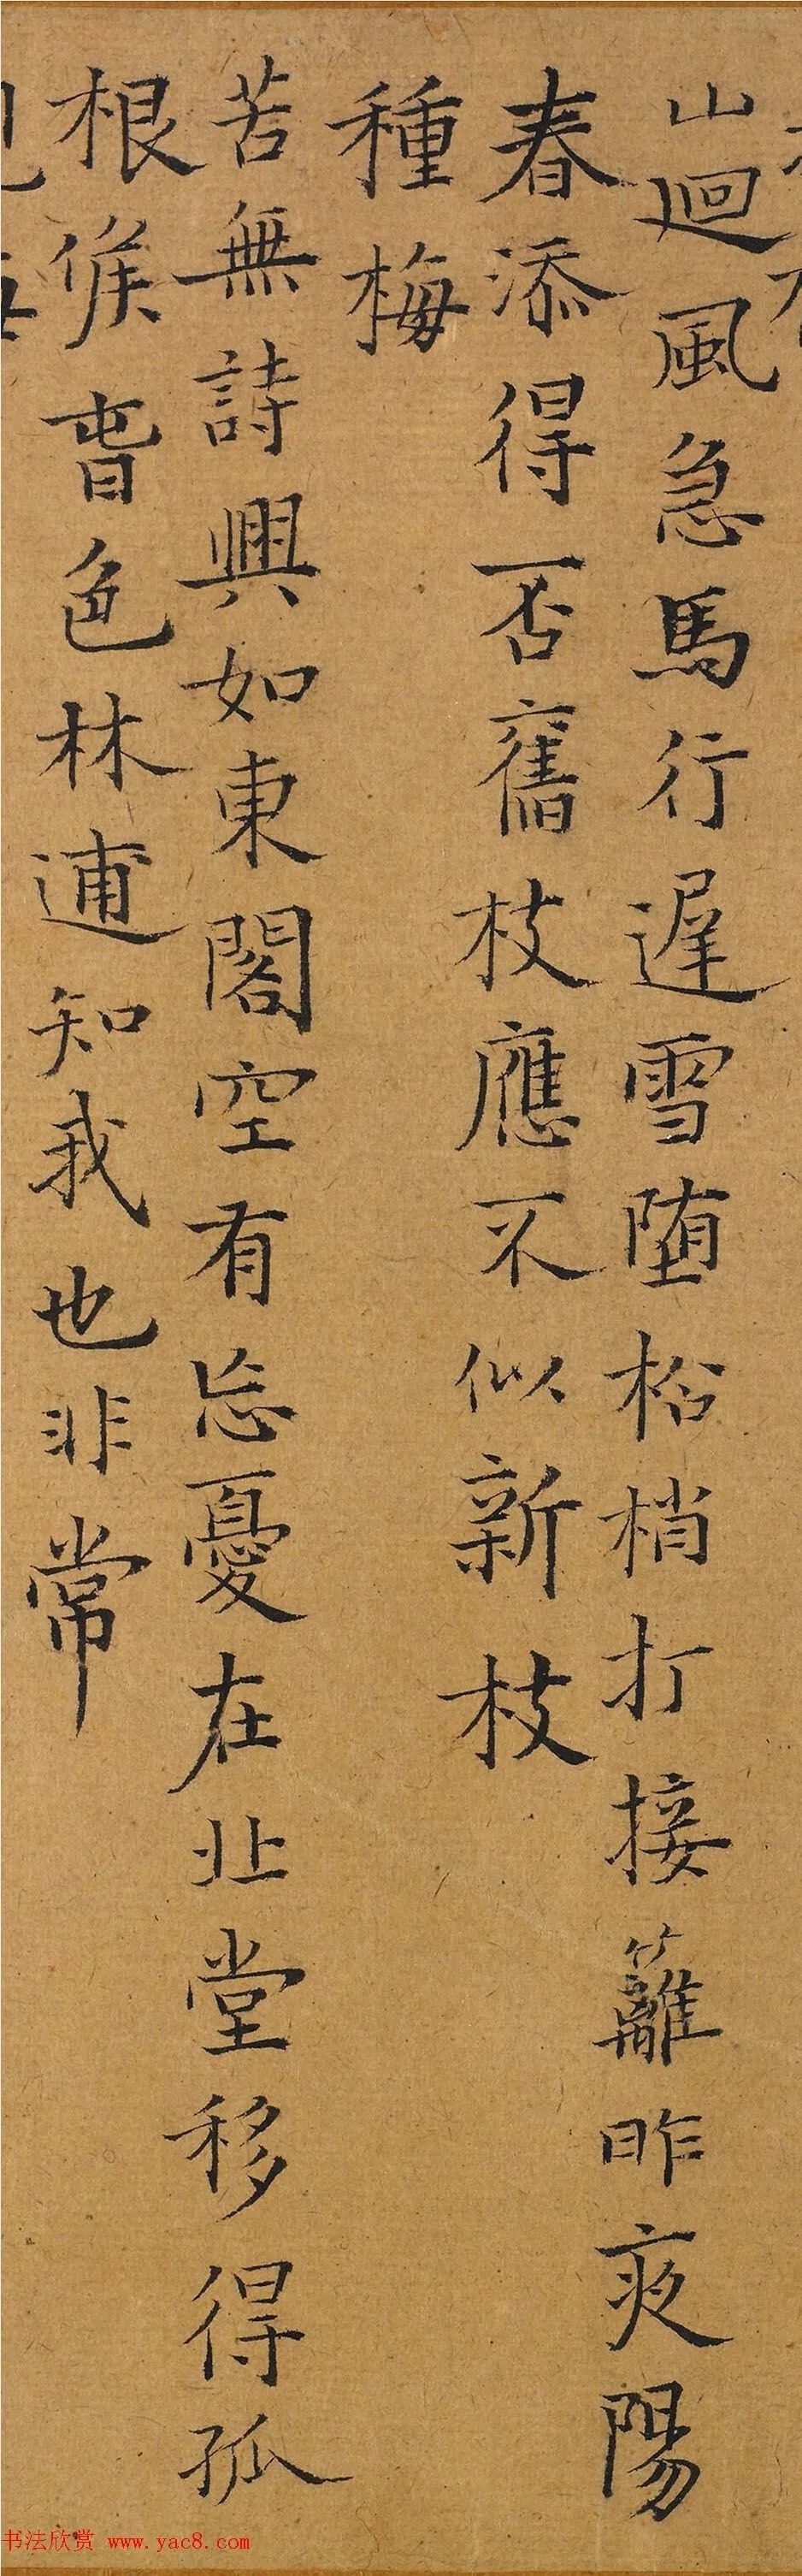 山迴風急馬行遲雪墮松梢打接籬昨夜陽
春添得否舊枝應不似新枝
種梅
苦無詩興如東閣空有忘憂在北堂移得孤
根候春色林逋知我也非常
书法欣赏 www.yac8.com